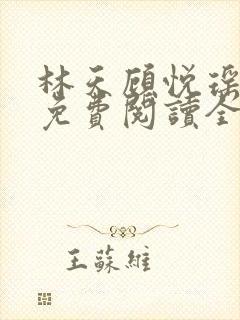 林天顾悦瑶
免費閱讀全
王蘇維